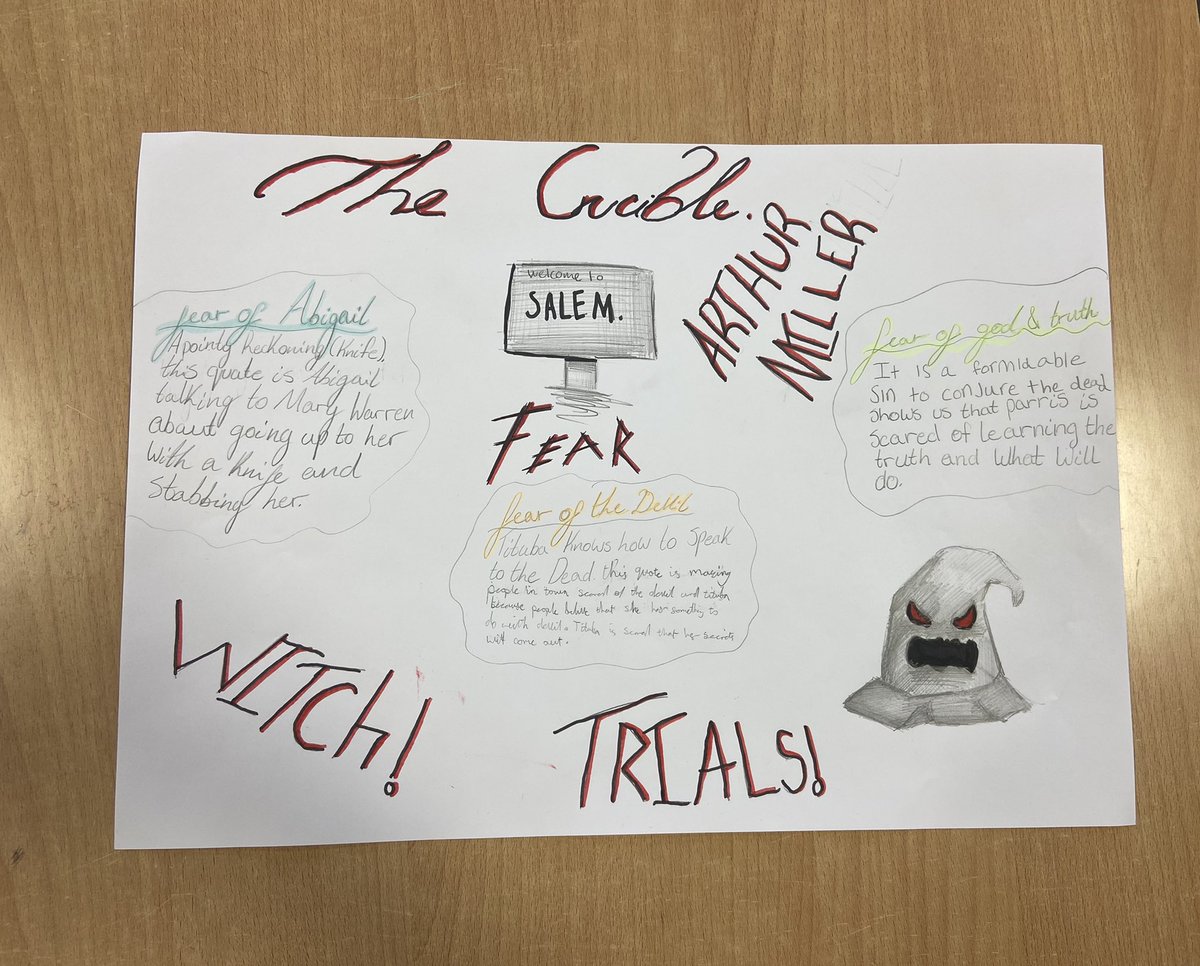 The Crucible.
ARTHUR
MILLER
Welcome to
SALEM.
FEAR
fear of Abigail
A pointy Reckoning (Knife),
this quote is Abigail
talking to Mary Warren
about going up to her
with a knife and
Stabbing her.
fear of god & truth
It is a formidable
Sin to conjure the dead
shows us that parris is
scared of learning the
truth and What Will
do.
fear of the
Tituba Knows how to Speak
to the Dead. this quote is making
people in town scared of the devil and tituba
because people believe that she has something to
do with devil. Tituba is scared that her secrets
will come out.
WITCh!
TRIALS!